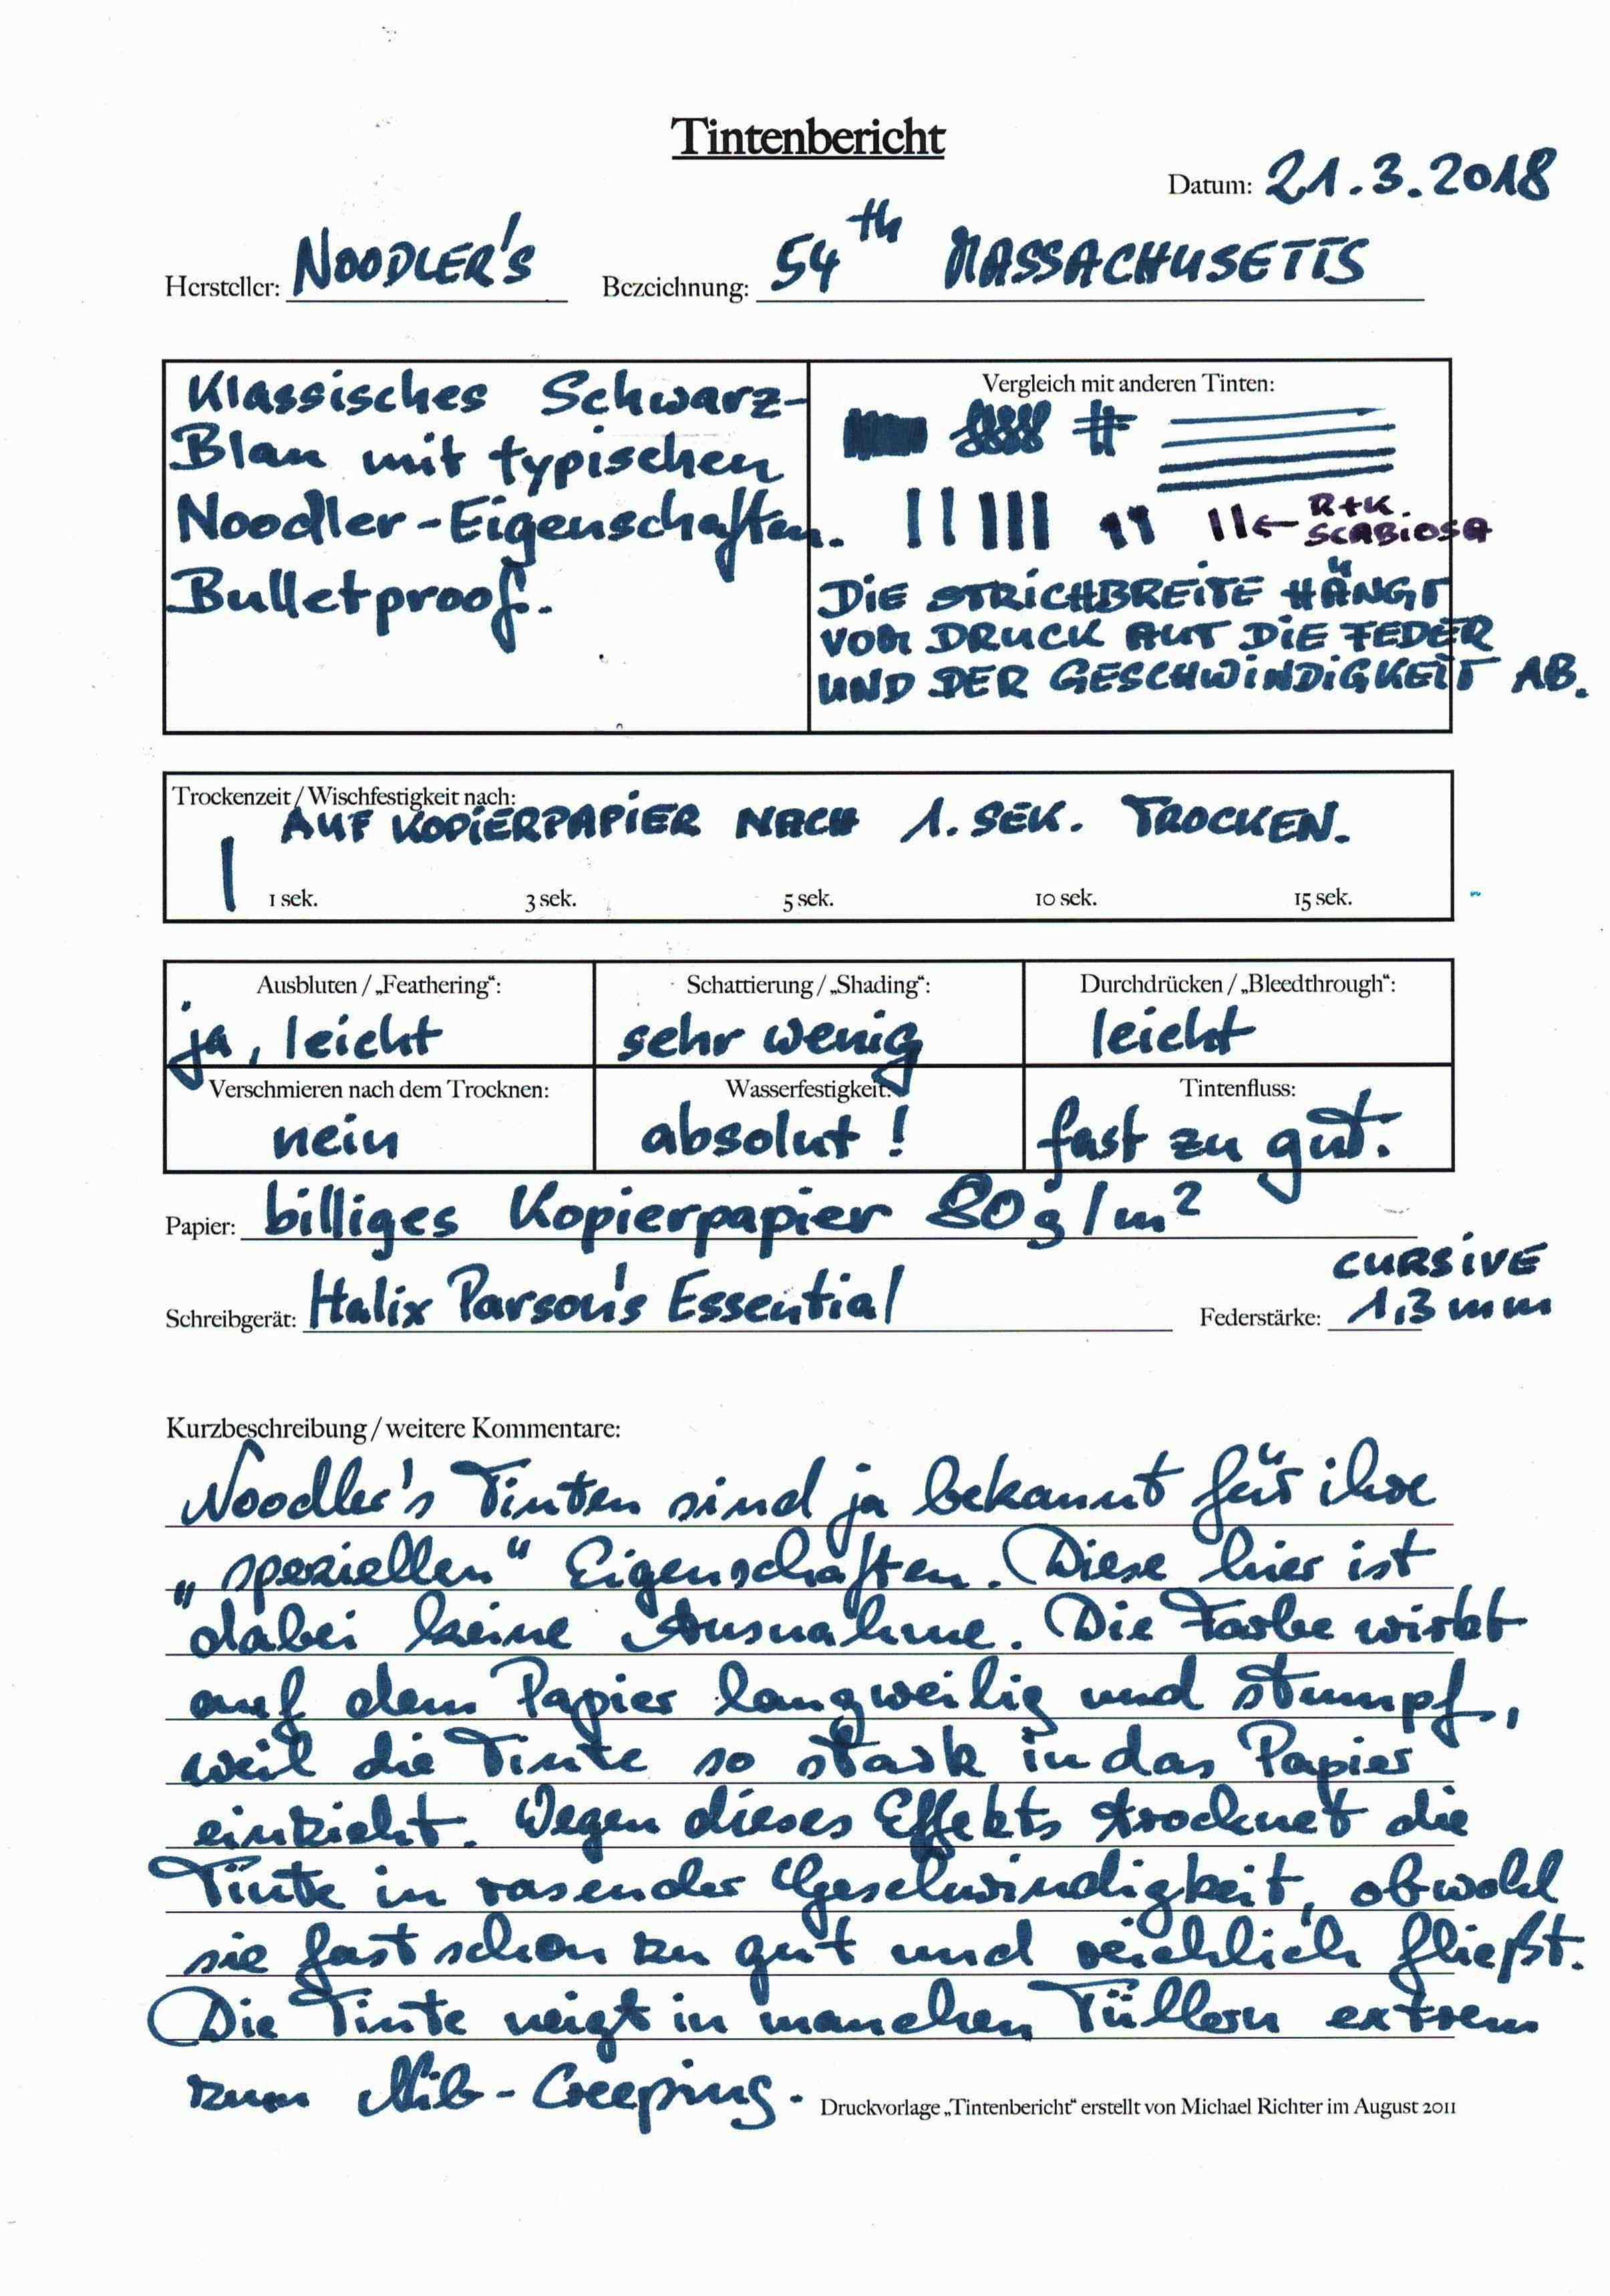 Tintenbericht
Datum: 21.3.2018
Hersteller: NOODLER'S Bezeichnung: 54th MASSACHUSETTS
Klassisches Schwarz-
Blau mit typischen
Noodler-Eigenschaften.
Bulletproof.
Vergleich mit anderen Tinten:
R+K.
SCABIOSA
DIE STRICHBREITE HÄNGT
VOM DRUCK AUF DIE FEDER
UND DER GESCHWINDIGKEIT AB.
Trockenzeit / Wischfestigkeit nach:
AUF KOPIERPAPIER NACH 1. SEK. TROCKEN.
1 sek. 3 sek. 5 sek. 10 sek. 15 sek.
Ausbluten / „Feathering“: Schattierung / „Shading“: Durchdrücken / „Bleedthrough“:
ja, leicht sehr wenig leicht
Verschmieren nach dem Trocknen: Wasserfestigkeit: Tintenfluss:
nein absolut! fast zu gut.
Papier: billiges Kopierpapier 80g/m²
CURSIVE
Schreibgerät: Halix Parson's Essential Federstärke: 1,3 mm
Kurzbeschreibung / weitere Kommentare:
Noodler's Tinten sind ja bekannt für ihre
„speziellen“ Eigenschaften. Diese hier ist
dabei keine Ausnahme. Die Farbe wirkt
auf dem Papier langweilig und stumpf,
weil die Tinte so stark in das Papier
einzieht. Wegen dieses Effekts trocknet die
Tinte in rasender Geschwindigkeit, obwohl
sie fast schon zu gut und reichlich fließt.
Die Tinte neigt in manchen Füllern extrem
zum Nib-Creeping.
Druckvorlage „Tintenbericht“ erstellt von Michael Richter im August 2011